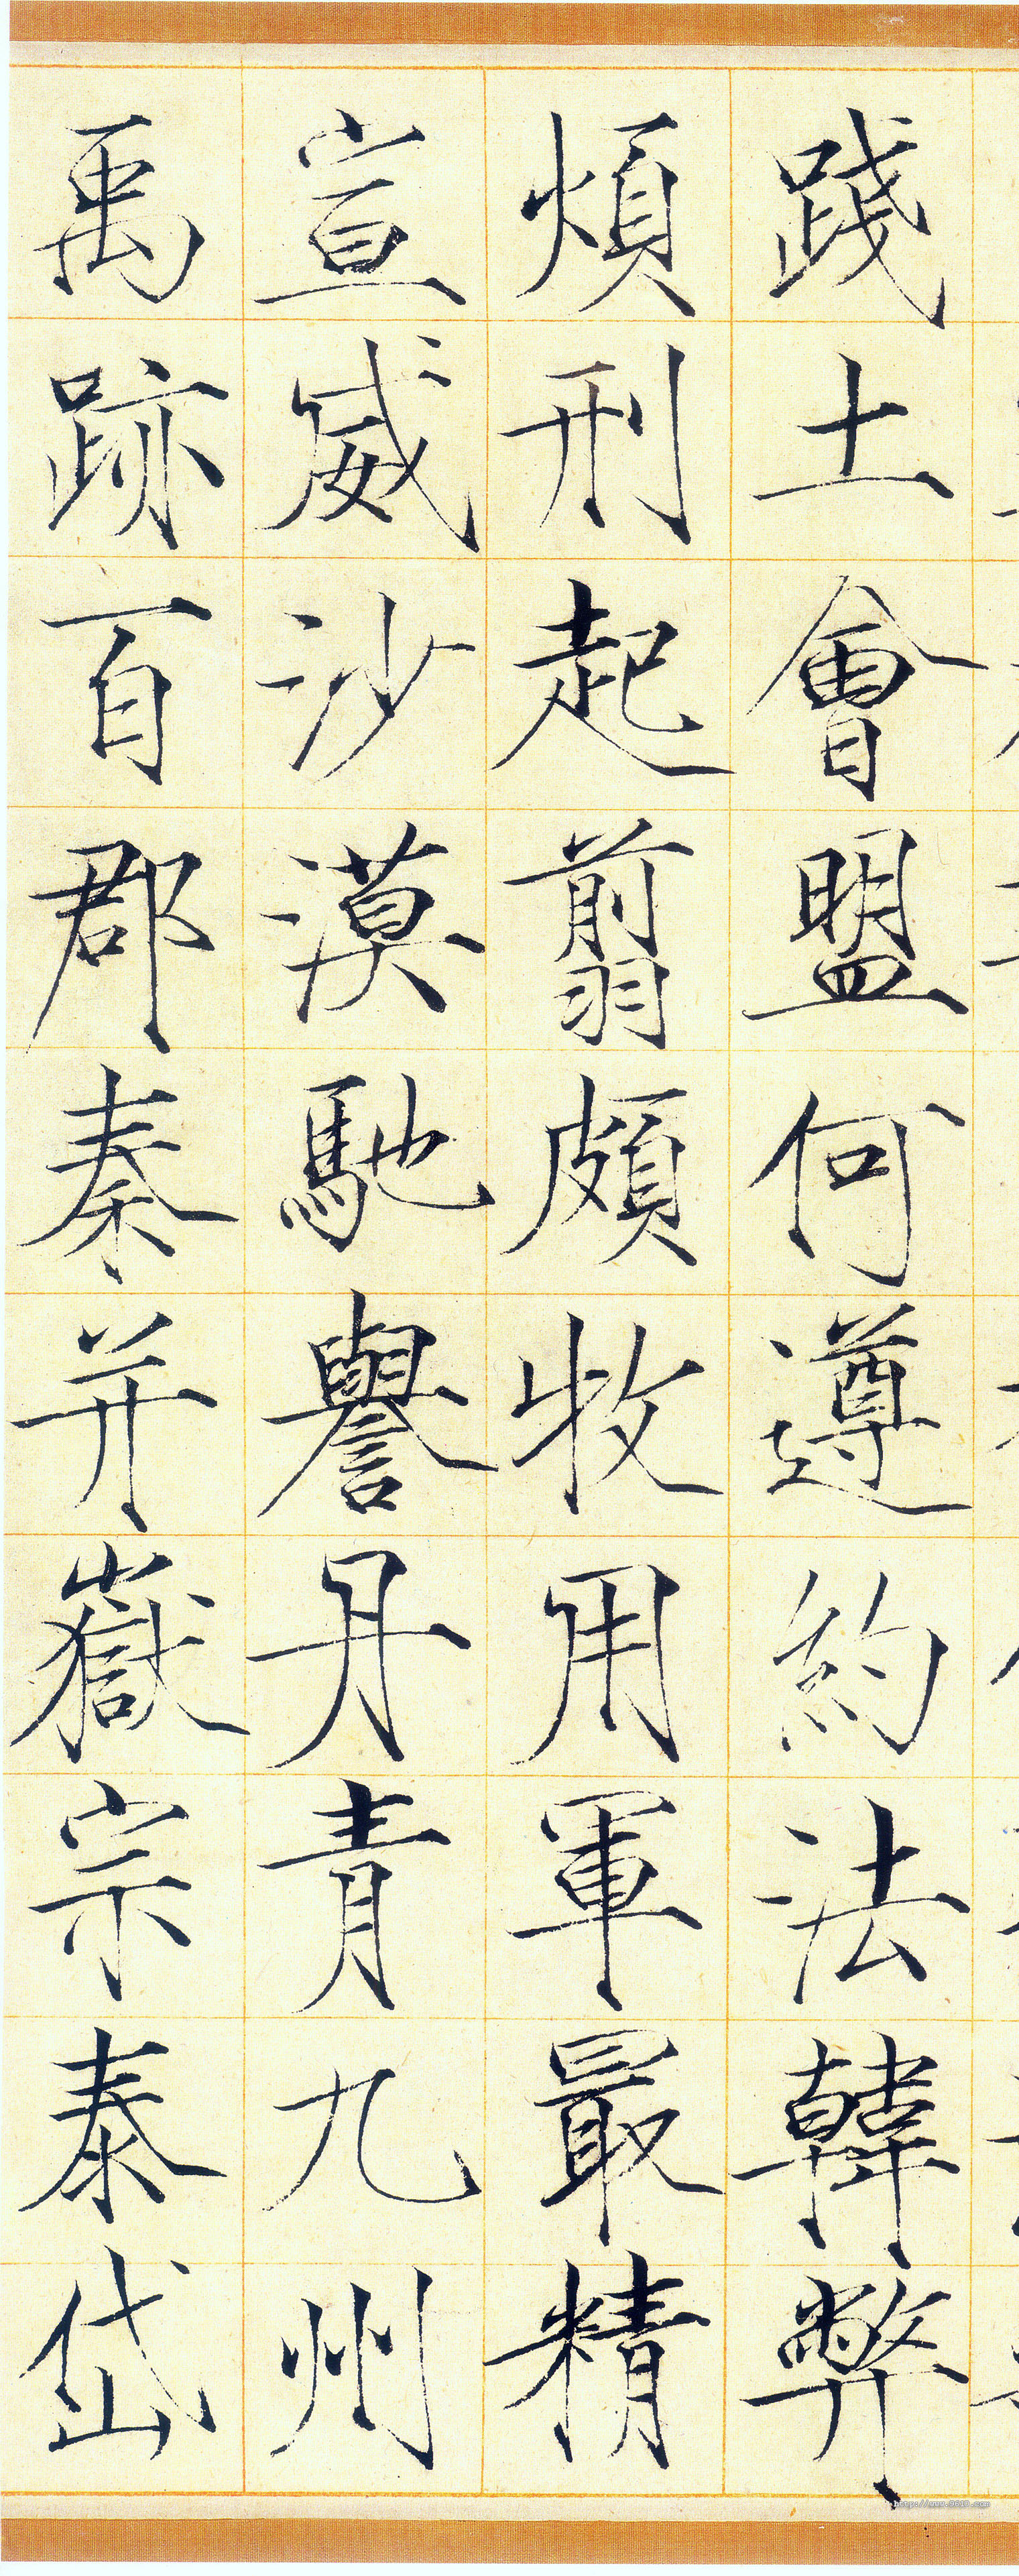 踐土會盟何遵約法韓弊
煩刑起翦頗牧用軍最精
宣威沙漠馳譽丹青九州
禹跡百郡秦并嶽宗泰岱